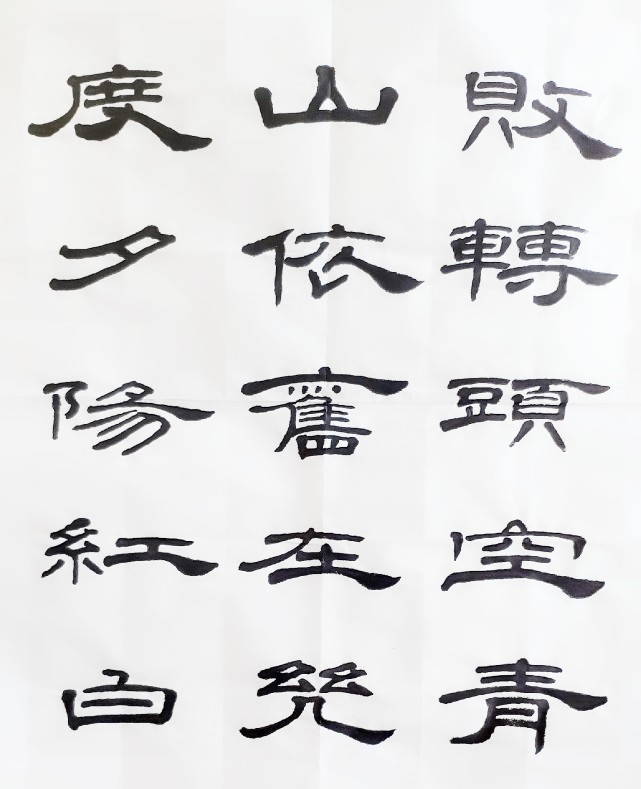 敗轉頭空青
山依舊在㡬
度夕陽紅白